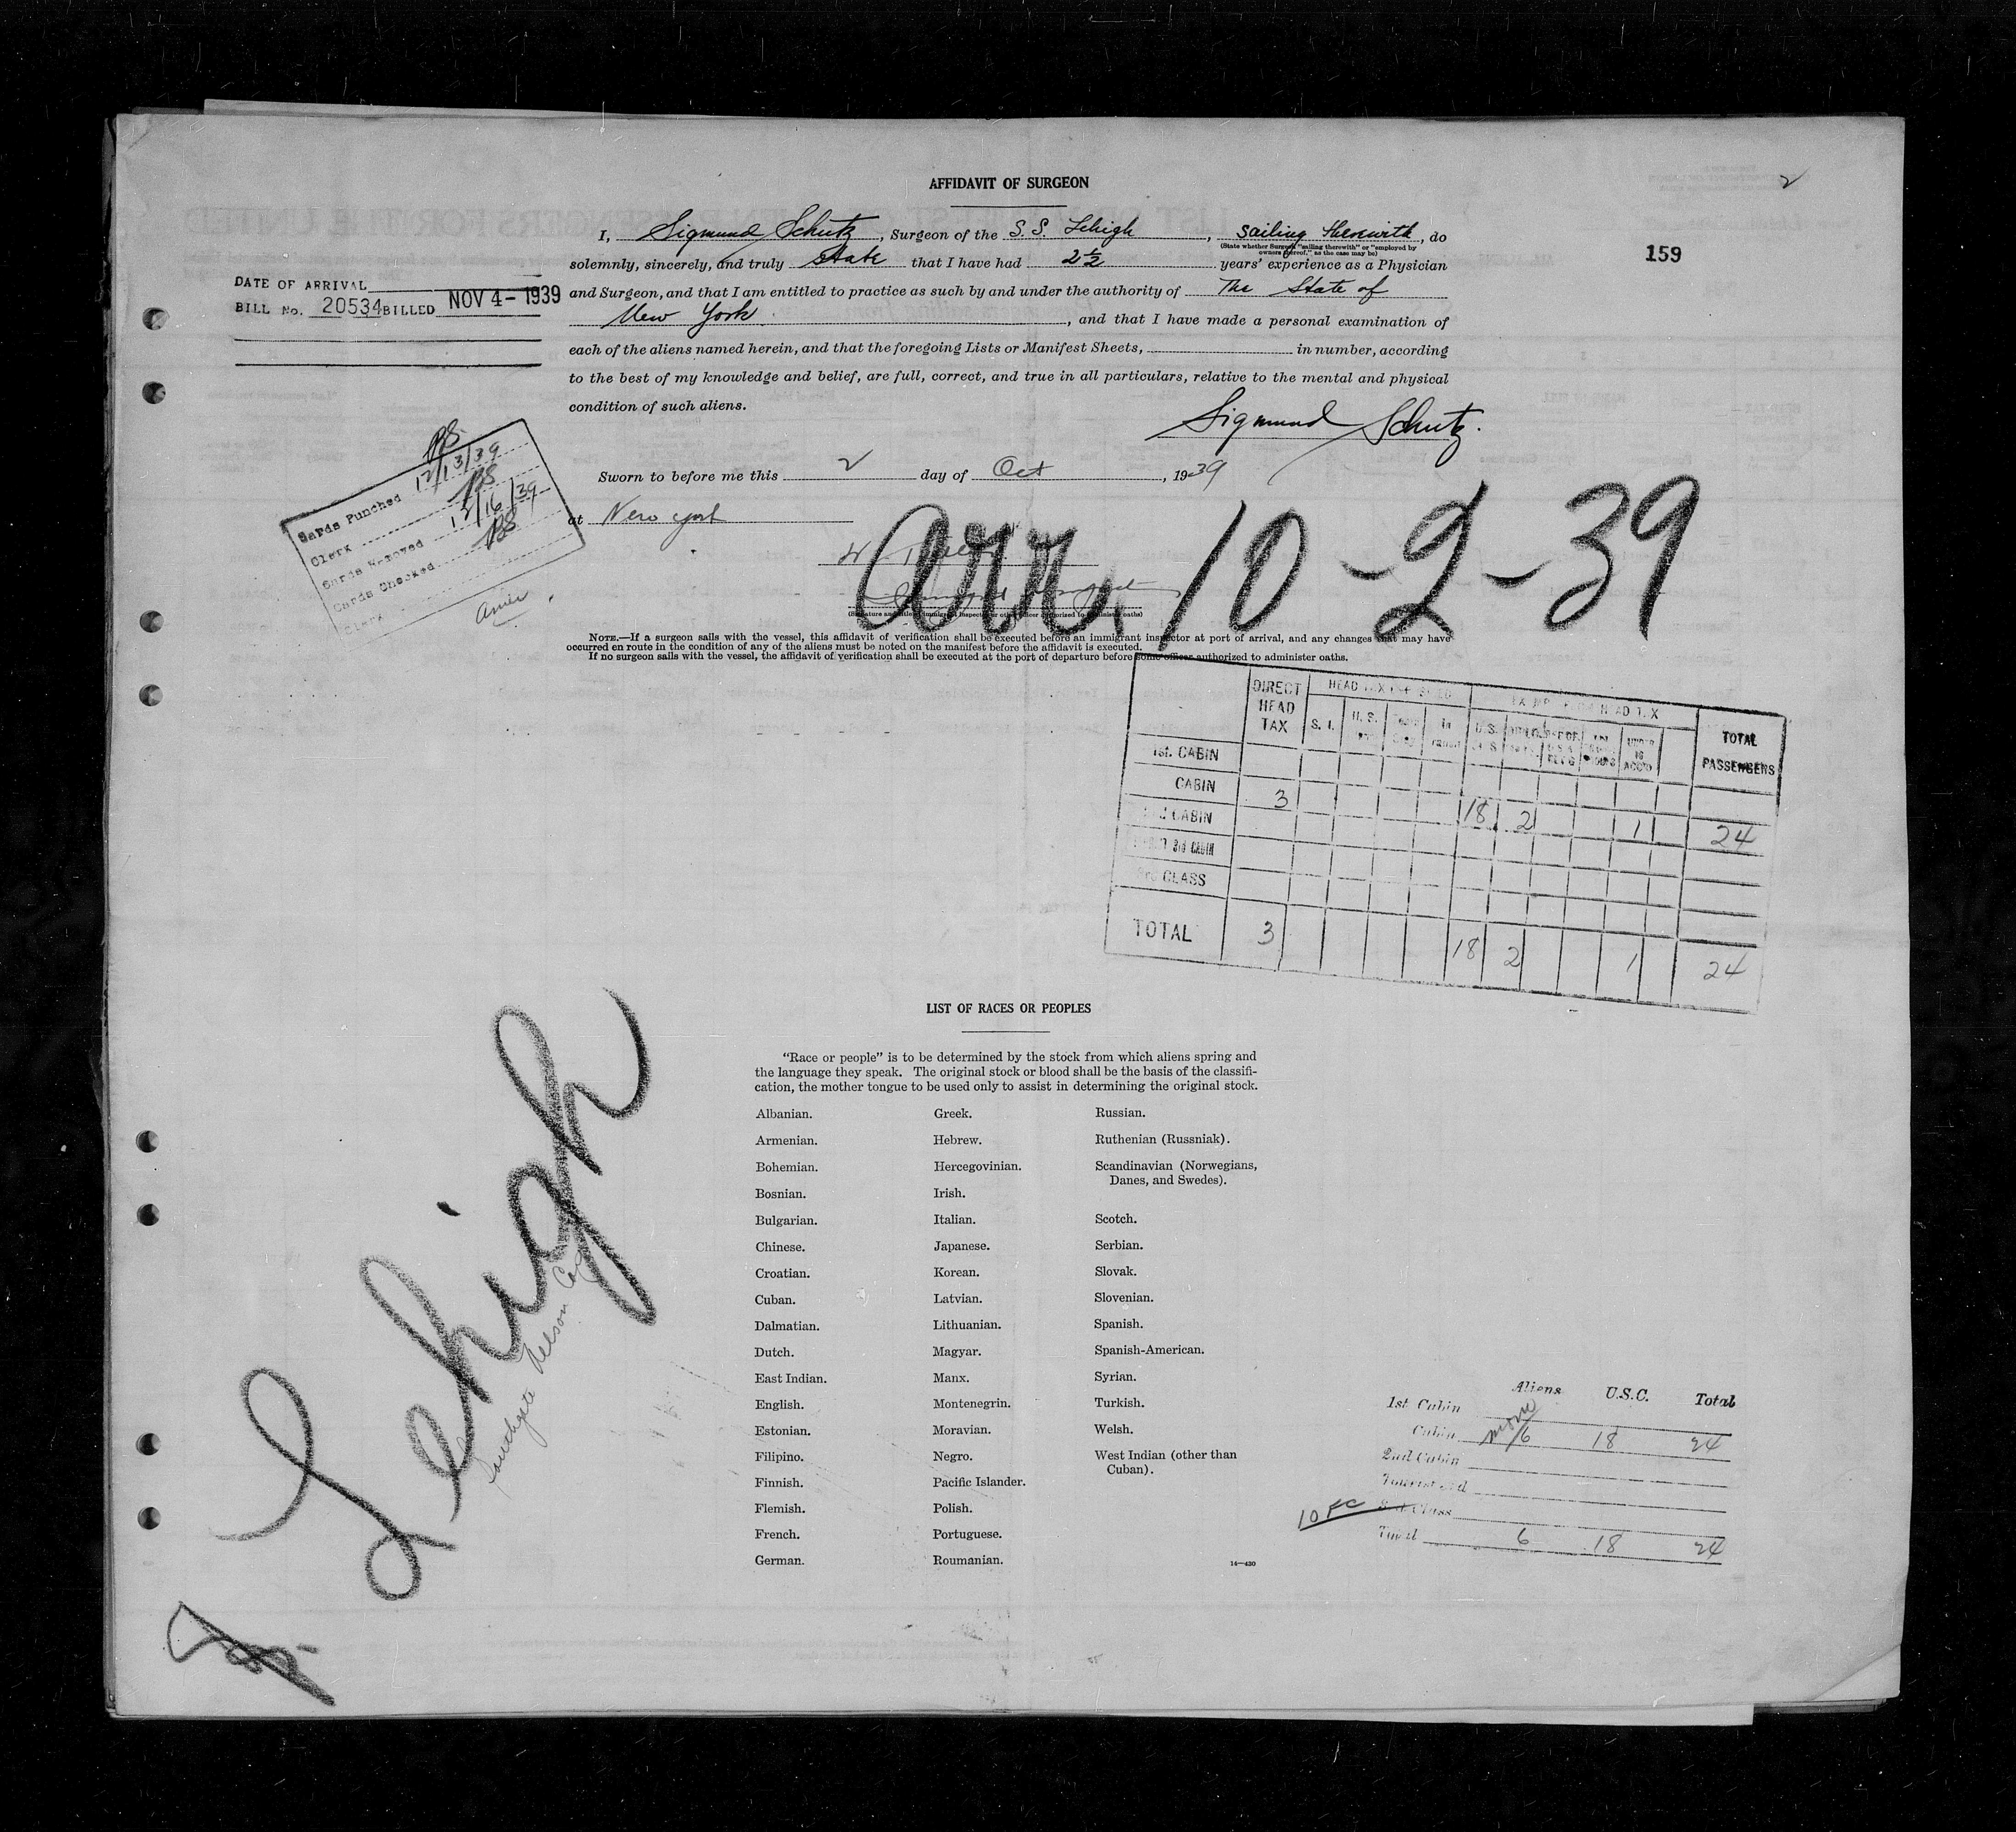 AFFIDAVIT OF SURGEON
2
159
I, Sigmund Schutz, Surgeon of the S.S. Lehigh, sailing therewith, do
(State whether Surgeon "sailing therewith" or "employed by
owners thereof," as the case may be)
solemnly, sincerely, and truly state that I have had 2½ years' experience as a Physician
and Surgeon, and that I am entitled to practice as such by and under the authority of The State of
New York, and that I have made a personal examination of
each of the aliens named herein, and that the foregoing Lists or Manifest Sheets, in number, according
to the best of my knowledge and belief, are full, correct, and true in all particulars, relative to the mental and physical
condition of such aliens.
Sigmund Schutz.
Sworn to before me this 2 day of Oct, 1939
at New York
DATE OF ARRIVAL
BILL No. 20534 BILLED NOV 4 - 1939
Cards Punched 12/13/39
Clerk BS
Cards Removed 12/16/39
Cards Checked BS
Clerk
arr. 10-2-39
(Signature and title of immigrant inspector or other officer authorized to administer oaths)
NOTE.—If a surgeon sails with the vessel, this affidavit of verification shall be executed before an immigrant inspector at port of arrival, and any changes that may have
occurred en route in the condition of any of the aliens must be noted on the manifest before the affidavit is executed.
If no surgeon sails with the vessel, the affidavit of verification shall be executed at the port of departure before some officer authorized to administer oaths.
DIRECT HEAD TAX
S. I.
U.S.
TOTAL PASSENGERS
1st. CABIN
CABIN 3 18 2 1 24
2nd CABIN
3rd CABIN
3rd CLASS
TOTAL 3 18 2 1 24
LIST OF RACES OR PEOPLES
"Race or people" is to be determined by the stock from which aliens spring and
the language they speak. The original stock or blood shall be the basis of the classifi-
cation, the mother tongue to be used only to assist in determining the original stock.
Albanian. Greek. Russian.
Armenian. Hebrew. Ruthenian (Russniak).
Bohemian. Hercegovinian. Scandinavian (Norwegians,
Danes, and Swedes).
Bosnian. Irish.
Bulgarian. Italian. Scotch.
Chinese. Japanese. Serbian.
Croatian. Korean. Slovak.
Cuban. Latvian. Slovenian.
Dalmatian. Lithuanian. Spanish.
Dutch. Magyar. Spanish-American.
East Indian. Manx. Syrian.
English. Montenegrin. Turkish.
Estonian. Moravian. Welsh.
Filipino. Negro. West Indian (other than
Cuban).
Finnish. Pacific Islander.
Flemish. Polish.
French. Portuguese.
German. Roumanian.
14—420
Lehigh
Southgate Nelson Co
Aliens U.S.C. Total
1st Cabin
Cabin 6 18 24
2nd Cabin
Tourist 3rd
3rd Class
Total 6 18 24